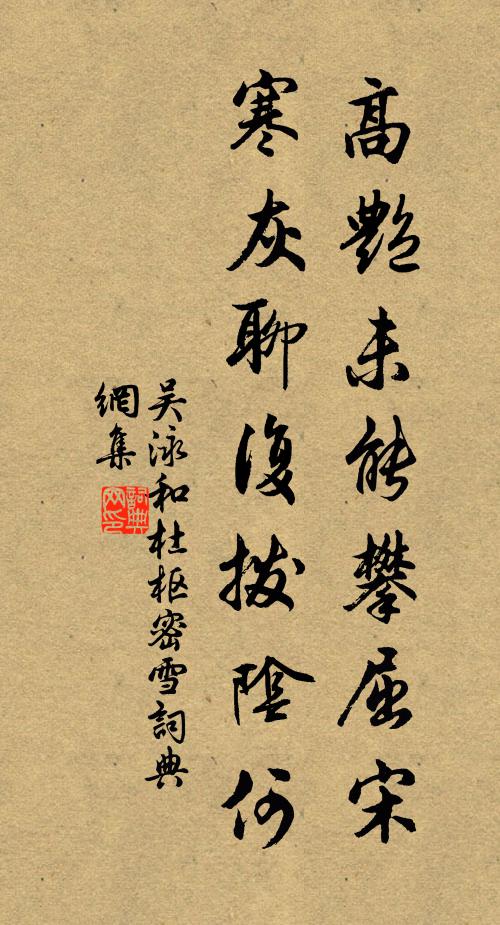 高艷未能攀屈宋
寒灰聊復撥陰何
吴泳和杜枢密雪詞典
網集
詞典網印